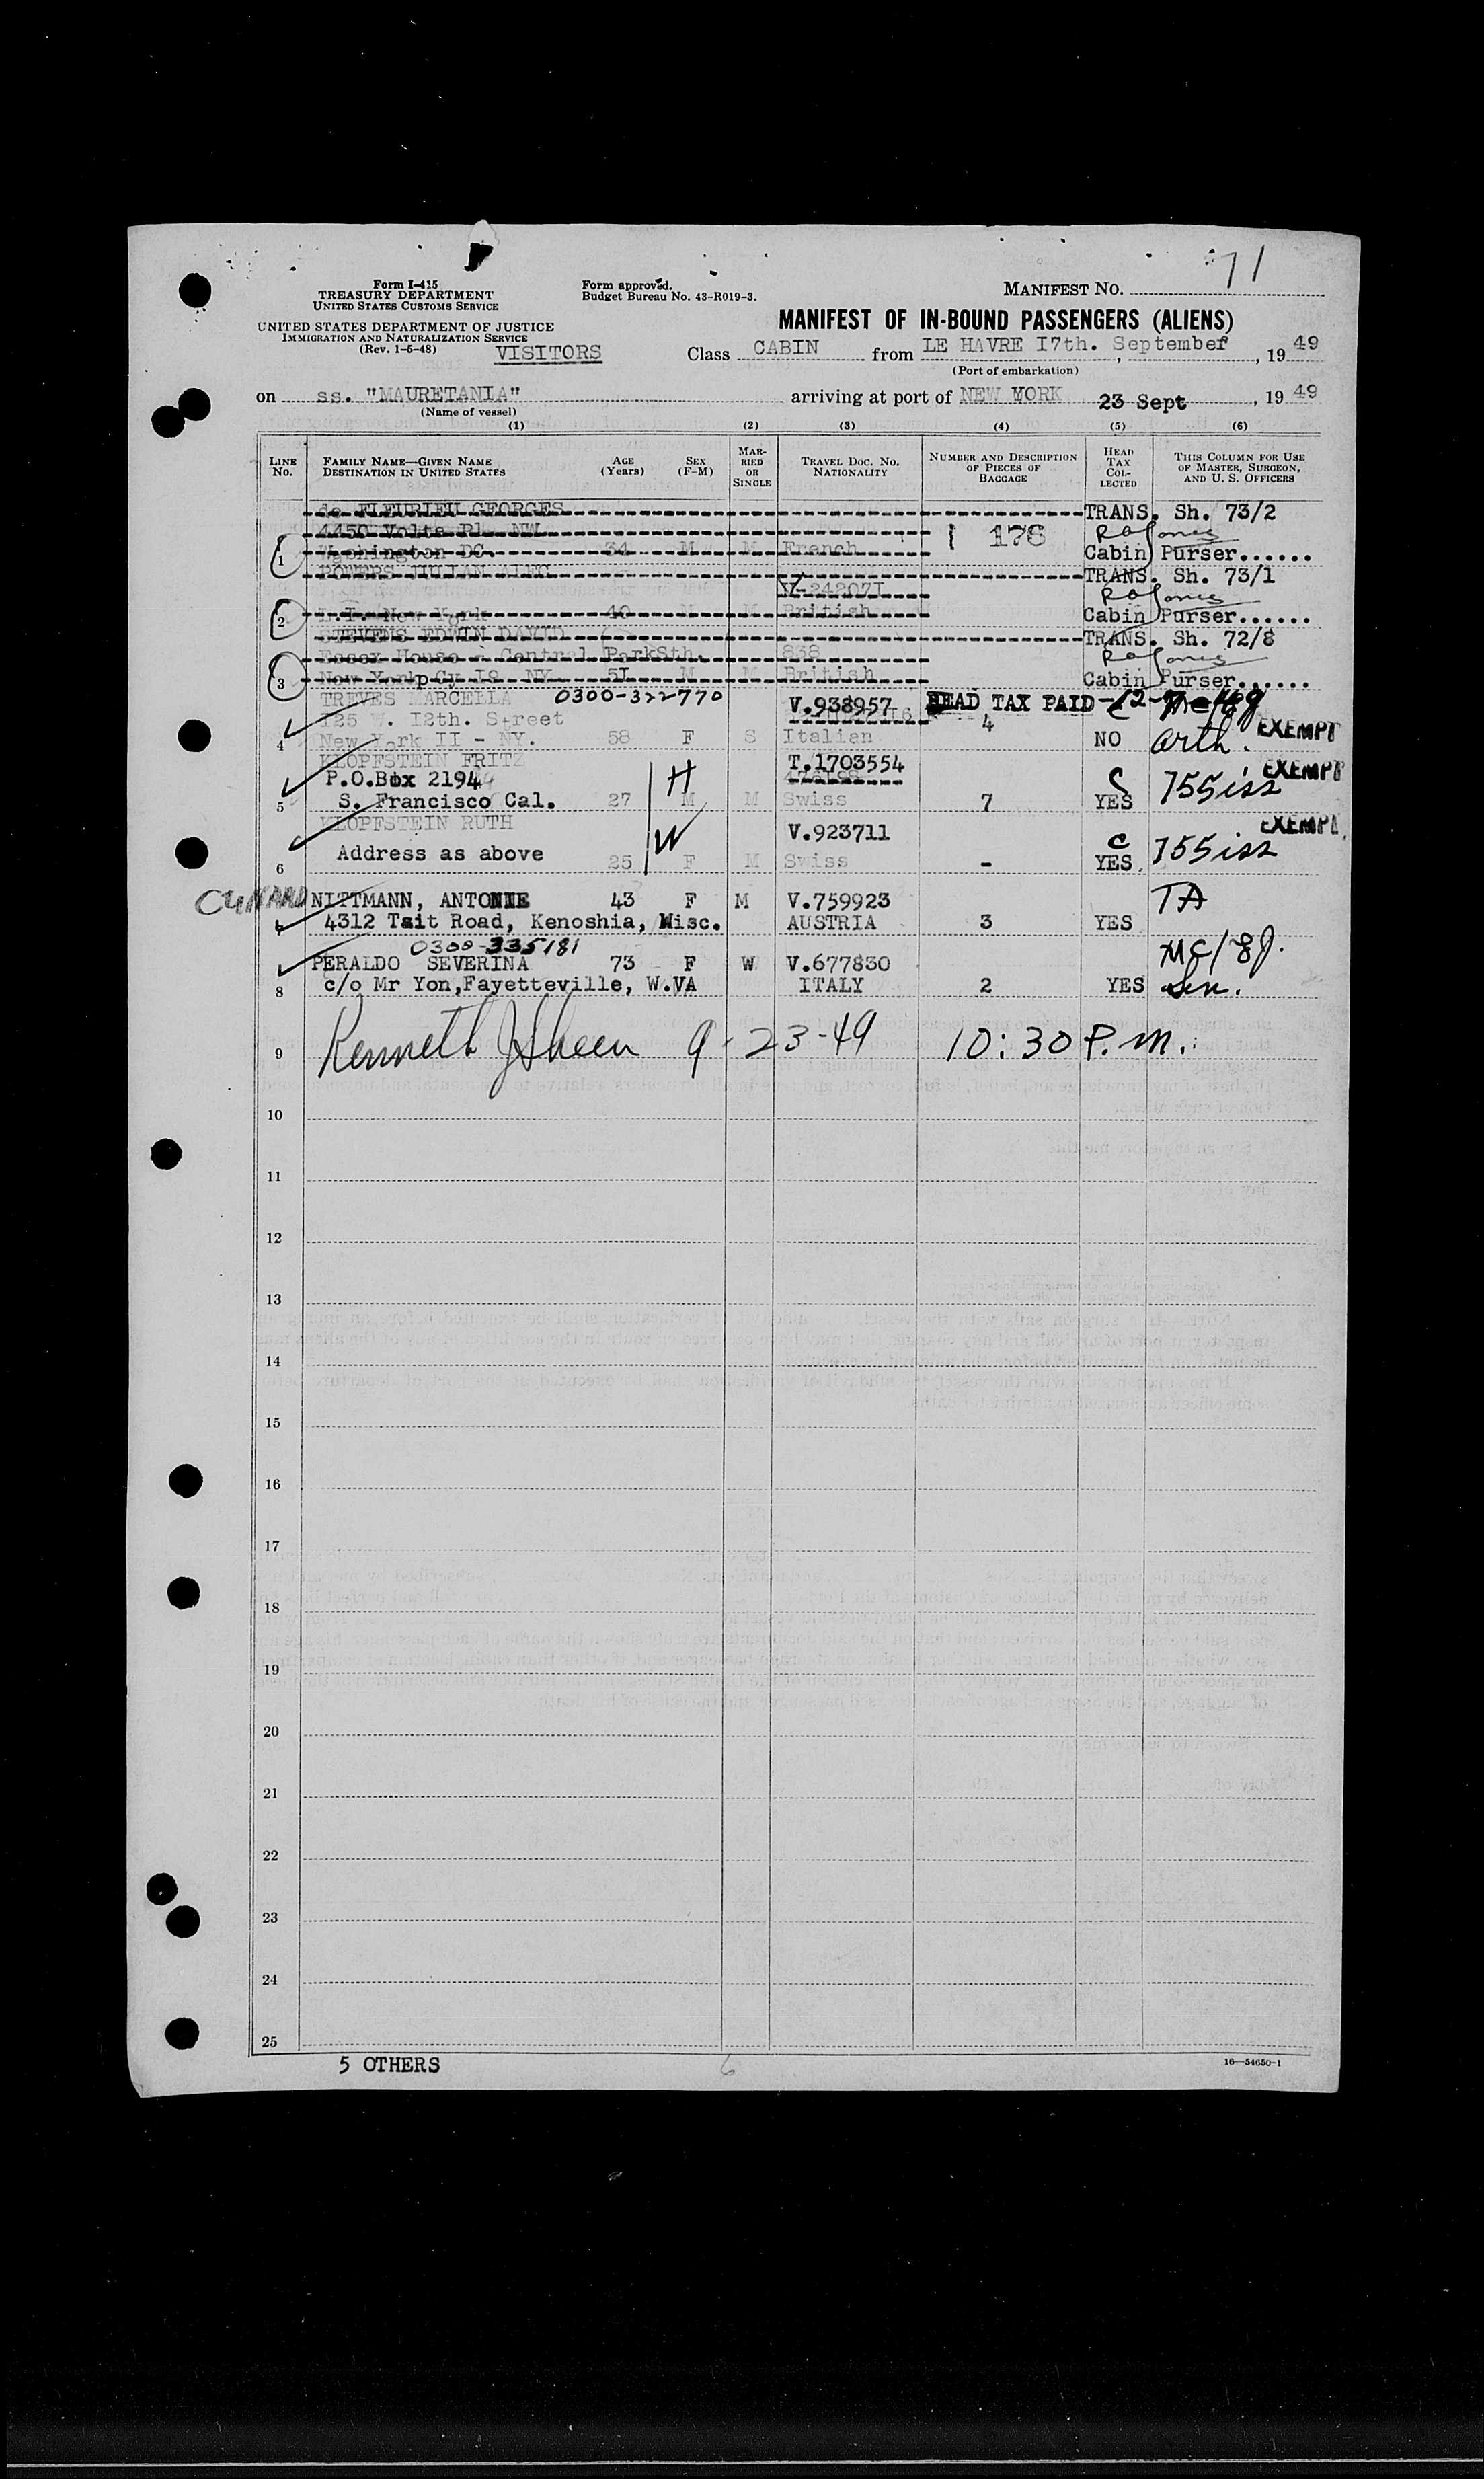 71
Form I-415
TREASURY DEPARTMENT
UNITED STATES CUSTOMS SERVICE
Form approved.
Budget Bureau No. 43-R019-3.
MANIFEST NO.
UNITED STATES DEPARTMENT OF JUSTICE
IMMIGRATION AND NATURALIZATION SERVICE
(Rev. 1-5-48)
VISITORS
MANIFEST OF IN-BOUND PASSENGERS (ALIENS)
Class CABIN from LE HAVRE I7th. September, 19 49
(Port of embarkation)
on ss. "MAURETANIA" arriving at port of NEW YORK 23 Sept, 19 49
(Name of vessel)
(1) (2) (3) (4) (5) (6)
LINE NO. FAMILY NAME—GIVEN NAME DESTINATION IN UNITED STATES AGE (Years) SEX (F-M) MARRIED OR SINGLE TRAVEL DOC. NO. NATIONALITY NUMBER AND DESCRIPTION OF PIECES OF BAGGAGE HEAD TAX COLLECTED THIS COLUMN FOR USE OF MASTER, SURGEON, AND U. S. OFFICERS
de FLEURIEU GEORGES TRANS. Sh. 73/2
4450 Volte Pl. NW 176
1 Washington DC. 34 M M French Cabin Purser......
POWERS JULIAN ALEC TRANS. Sh. 73/1
24207I
2 L.I. New York 40 M M British Cabin Purser......
STEVENS EDWIN DAVID TRANS. Sh. 72/8
Essex House - Central ParkSth. 838
3 New York Cy I9 NY 5I M M British Cabin Purser......
TREVES MARCELLA 0300-322770 V.938957 HEAD TAX PAID
I25 W. I2th. Street 4
4 New York II - NY. 58 F S Italian NO arth. EXEMPT
KLOPFSTEIN FRITZ T.1703554 EXEMPT
P.O.Box 2194 H C 755iss
5 S. Francisco Cal. 27 M M Swiss 7 YES
KLOPFSTEIN RUTH V.923711 EXEMPT
Address as above W C 755iss
6 25 F M Swiss - YES
CUNARD NITTMANN, ANTONIE 43 F M V.759923 TA
7 4312 Tait Road, Kenoshia, Wisc. AUSTRIA 3 YES
0300-335181
PERALDO SEVERINA 73 F W V.677830
8 c/o Mr Yon,Fayetteville, W.VA ITALY 2 YES
9 Kenneth J Sheen 9-23-49 10:30 P.M.
10
11
12
13
14
15
16
17
18
19
20
21
22
23
24
25
5 OTHERS 6 16—54650-1